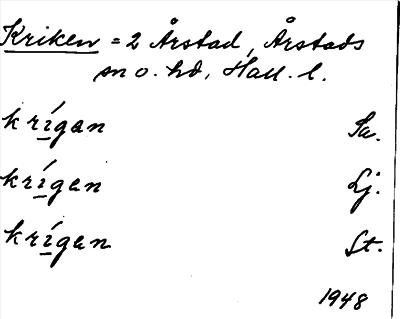 Kriken = 2 Årstad, Årstads
sn o. hd, Hall. l.
krígan Sa.
krígan Lj.
krígan St.
1948